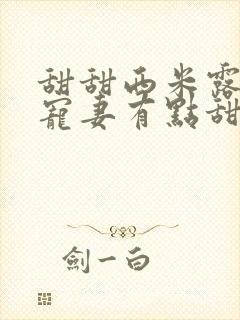 甜甜西米露
寵妻有點甜
劍一白